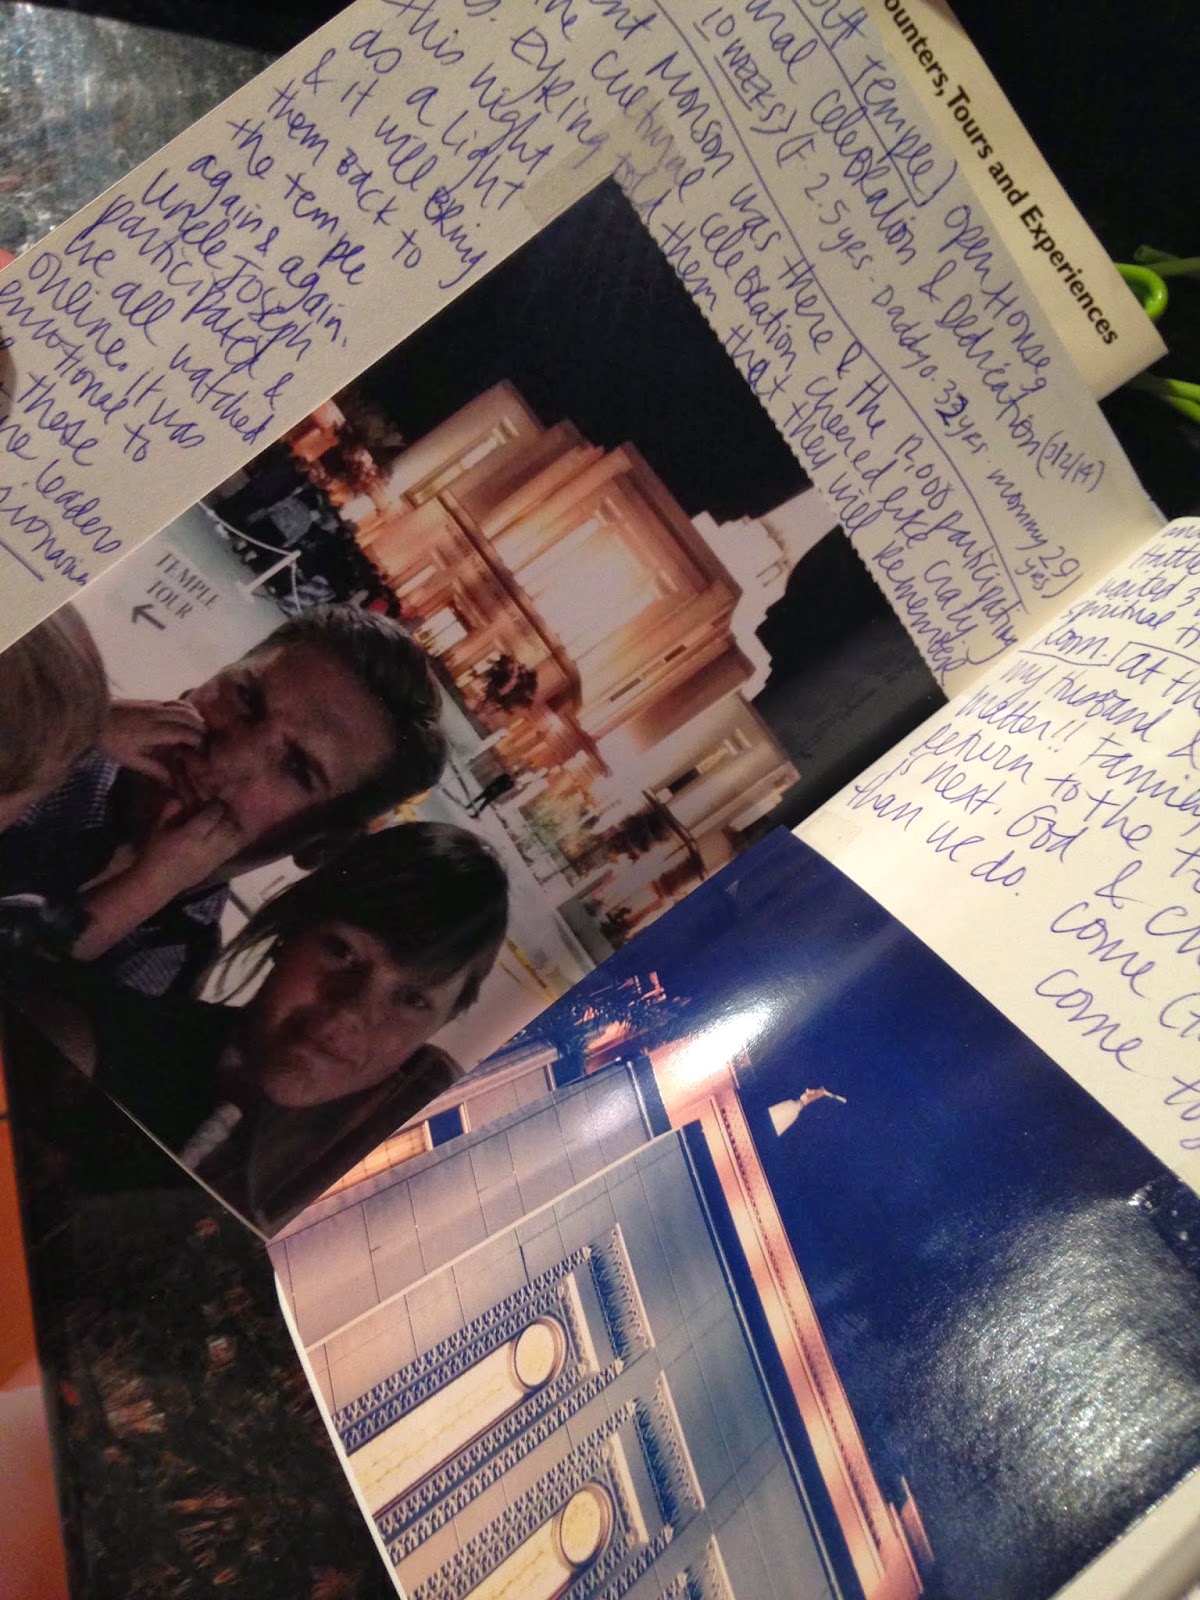 ounters, Tours and Experiences
temple) open house,
celebration & dedication
10 weeks) (F. 2.5 yrs. Daddyo. 32 yrs. mommy 29 yrs)
Monson was there & the 12,000 participating
the cultural celebration cheered like crazy
Eyring told them that they will remember
this night
as a light
& it will bring
them back to
the temple
again & again.
Uncle Joseph
participated &
we all watched
online. It was
emotional to
these
leaders
TEMPLE
TOUR
waited 3
spiritual th
room. at the
my husband &
matter!! Families
return to the te
is next. God & Ch
than we do.
come (t
come to